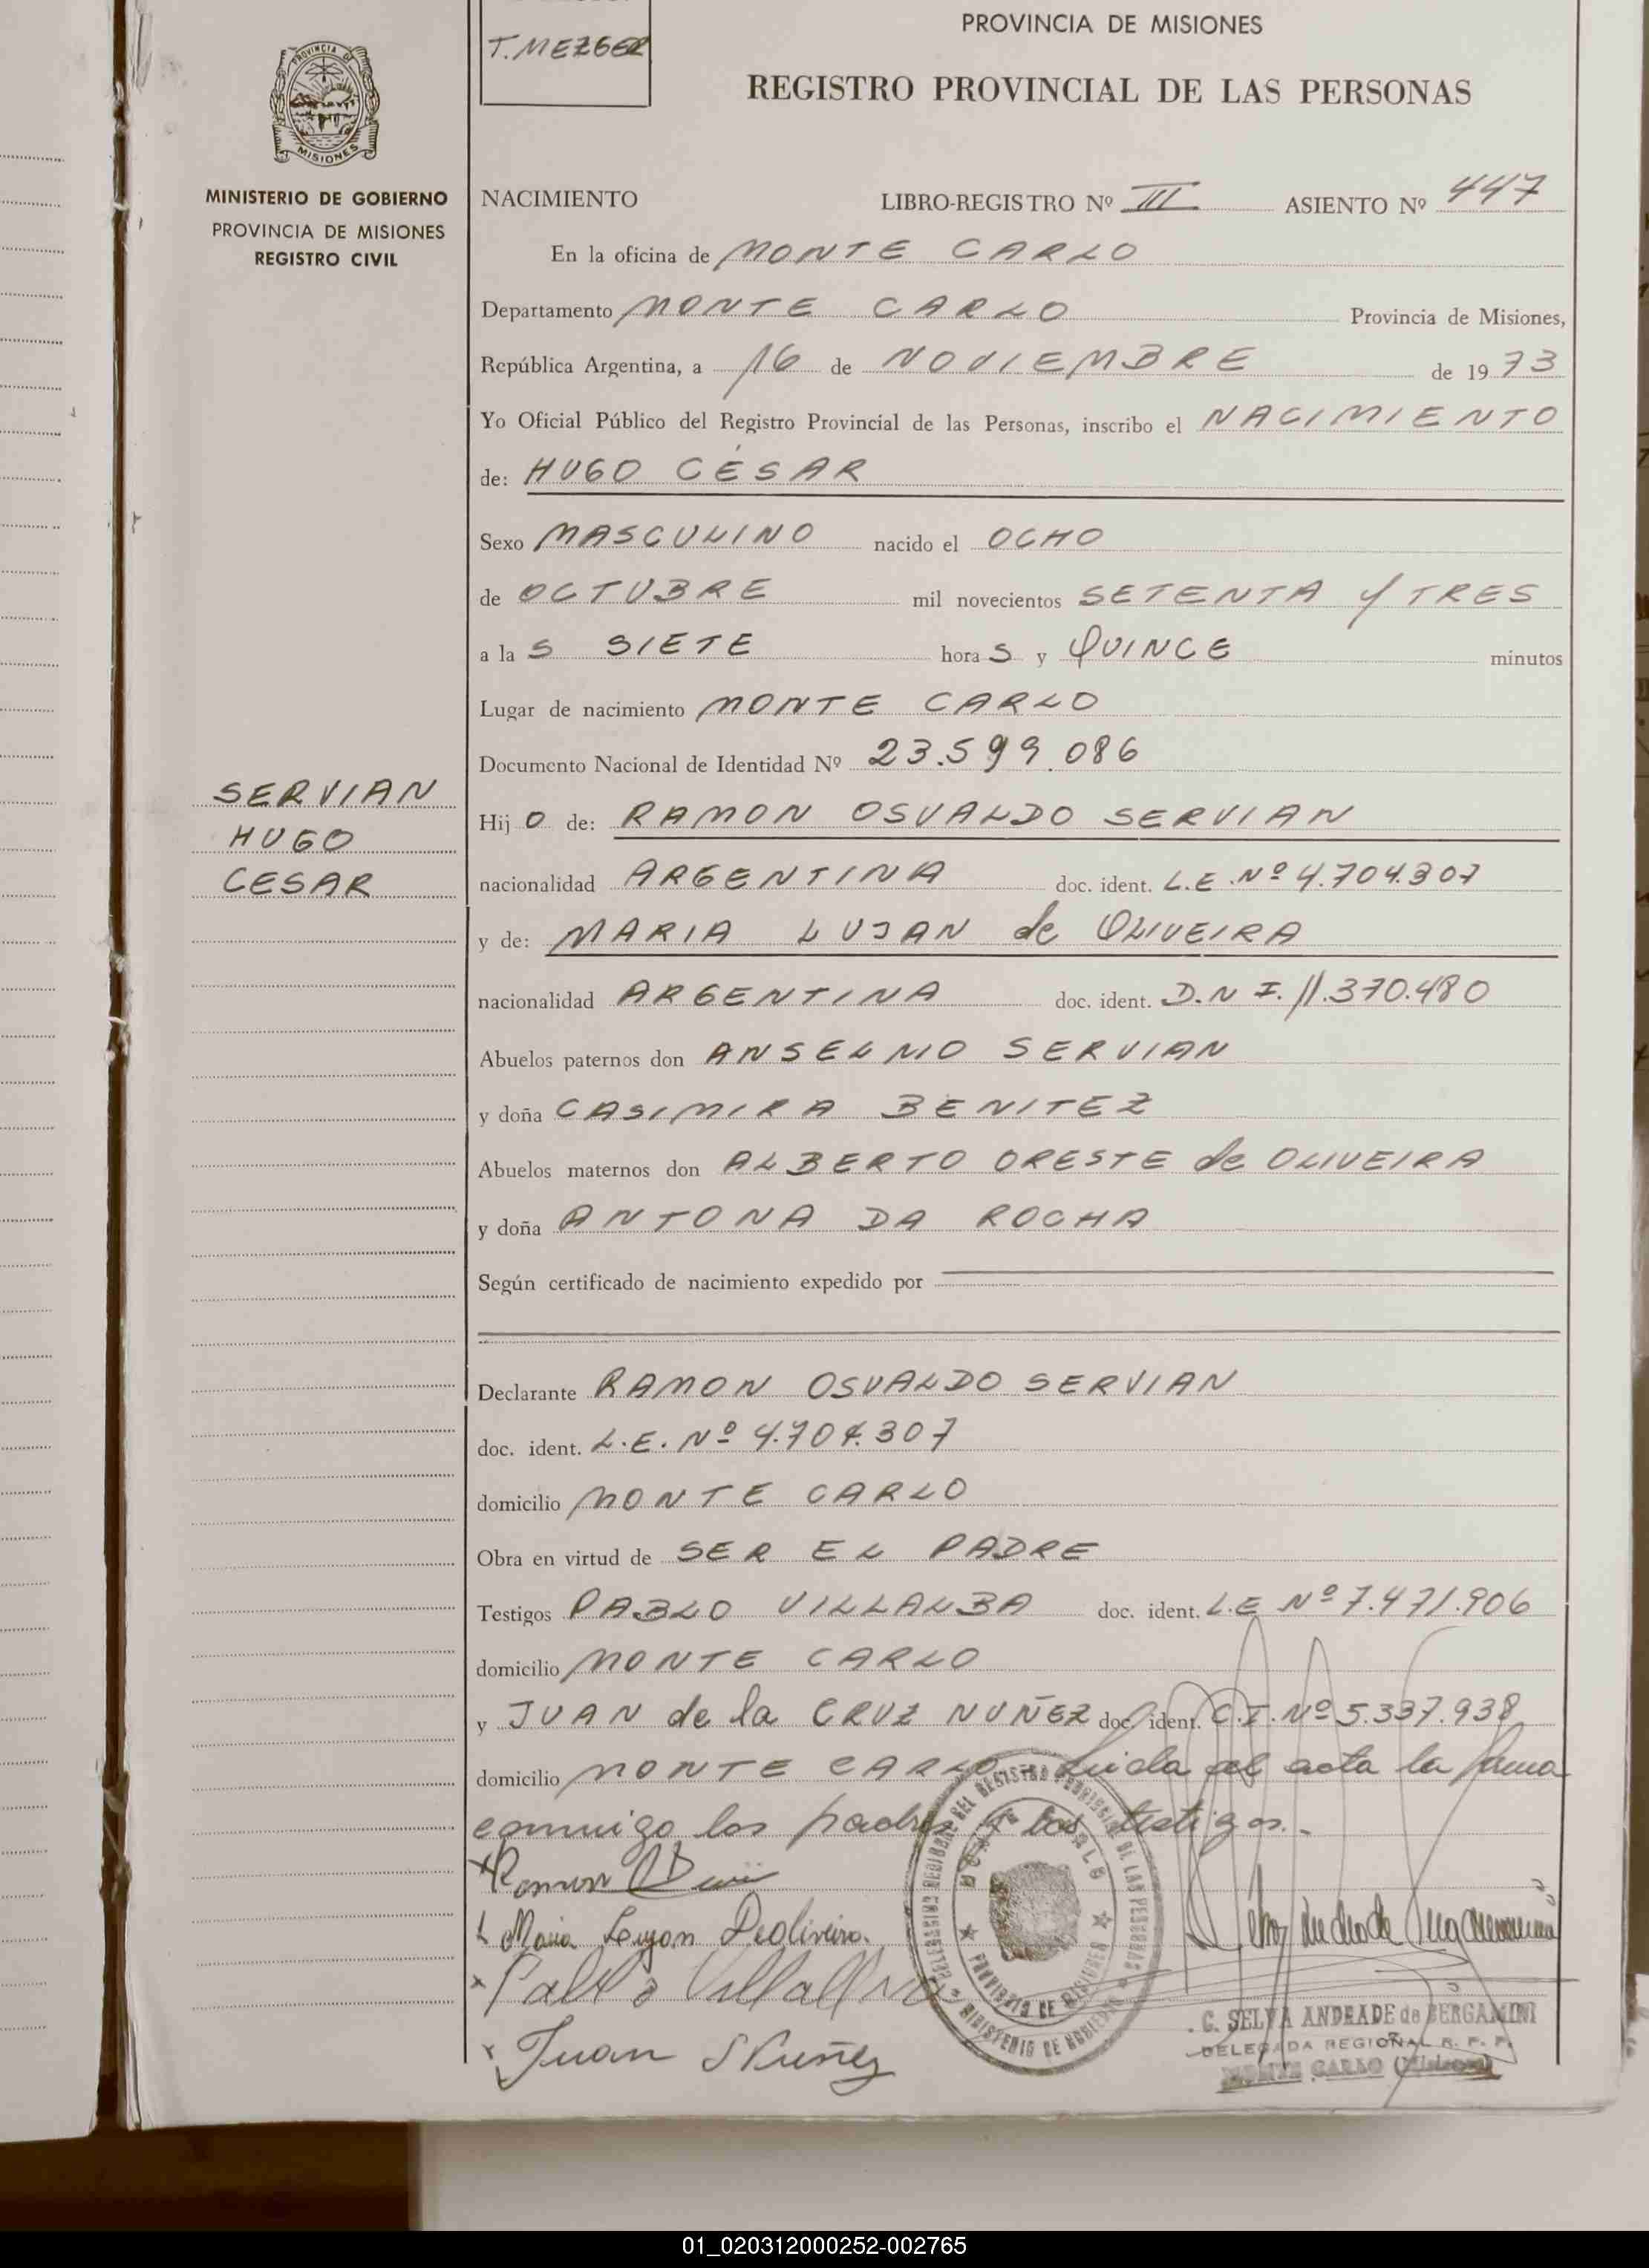 T. MEZGER
PROVINCIA DE MISIONES
REGISTRO PROVINCIAL DE LAS PERSONAS
PROVINCIA DE
MISIONES
MINISTERIO DE GOBIERNO
PROVINCIA DE MISIONES
REGISTRO CIVIL
NACIMIENTO LIBRO-REGISTRO Nº III ASIENTO Nº 447
En la oficina de MONTE CARLO
Departamento MONTE CARLO Provincia de Misiones,
República Argentina, a 16 de NOVIEMBRE de 1973
Yo Oficial Público del Registro Provincial de las Personas, inscribo el NACIMIENTO
de: HUGO CÉSAR
Sexo MASCULINO nacido el OCHO
de OCTUBRE mil novecientos SETENTA Y TRES
a las SIETE horas y QUINCE minutos
Lugar de nacimiento MONTE CARLO
Documento Nacional de Identidad Nº 23.599.086
SERVIAN
HUGO
CESAR
Hijo de: RAMON OSVALDO SERVIAN
nacionalidad ARGENTINA doc. ident. L.E. Nº 4.704.307
y de: MARIA LUJAN de OLIVEIRA
nacionalidad ARGENTINA doc. ident. D.N.I. 11.370.480
Abuelos paternos don ANSELMO SERVIAN
y doña CASIMIRA BENITEZ
Abuelos maternos don ALBERTO ORESTE de OLIVEIRA
y doña ANTONA DA ROCHA
Según certificado de nacimiento expedido por
Declarante RAMON OSVALDO SERVIAN
doc. ident. L.E. Nº 4.704.307
domicilio MONTE CARLO
Obra en virtud de SER EL PADRE
Testigos PABLO VILLALBA doc. ident. L.E Nº 7.471.906
domicilio MONTE CARLO
y JUAN de la CRUZ NUÑEZ doc. ident. C.I. Nº 5.337.938
domicilio MONTE CARLO. Leida el acta la firma
conmigo los padres y los testigos.-
Ramon
Maria Lujan Deoliveira.
Pablo Villalba
Juan Nuñez
MONTE CARLO
PROVINCIA DE MISIONES
MINISTERIO DE GOBIERNO
C. SELVA ANDRADE de BERGAMINI
DELEGADA REGIONAL R. P. P.
MONTE CARLO (Misiones)
01_020312000252-002765